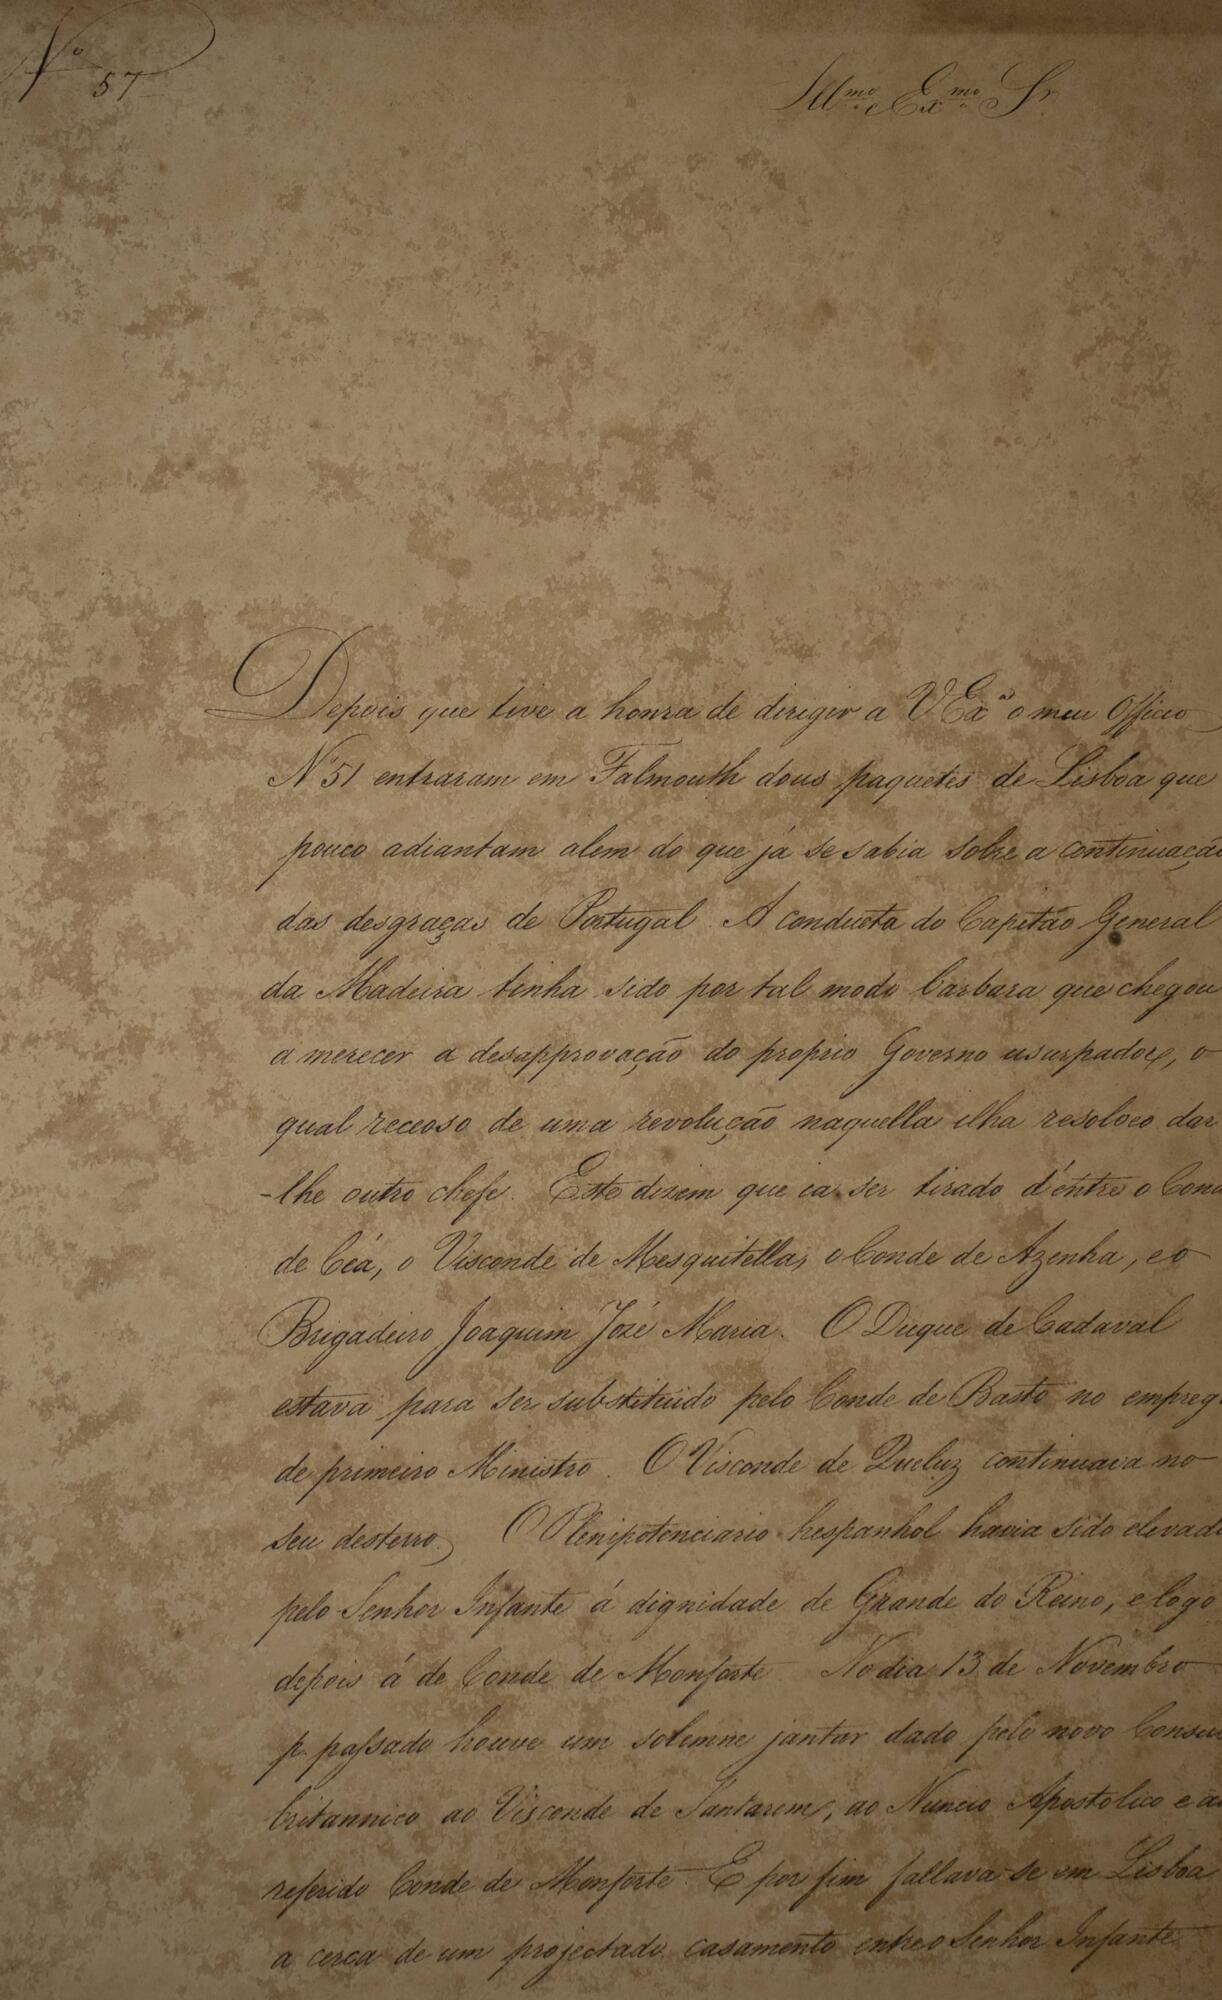 Nº 57
Illmo e Exmo Sr.
Depois que tive a honra de dirigir a V Exª o meu Officio
Nº 51 entraram em Falmouth dous paquetes de Lisboa que
pouco adiantam alem do que já se sabia sobre a continuação
das desgraças de Portugal. A conducta do Capitão General
da Madeira tinha sido por tal modo barbara que chegou
a merecer a desapprovação do proprio Governo usurpador, o
qual receoso de uma revolução naquella ilha resolveo dar
-lhe outro chefe. Este dizem que ia ser tirado d'entre o Cond
de Céa, o Visconde de Mesquitella, o Conde de Azenha, e o
Brigadeiro Joaquim Jozé Maria. O Duque de Cadaval
estava para ser substituido pelo Conde de Basto no empreg
de primeiro Ministro. O Visconde de Queluz continuava no
seu desterro. O Plenipotenciario hespanhol havia sido elevado
pelo Senhor Infante á dignidade de Grande do Reino, e logo
depois á de Conde de Monforte. No dia 13 de Novembro
p. passado houve um solemne jantar dado pelo novo Consul
britannico ao Visconde de Santarem, ao Nuncio Apostolico e ao
referido Conde de Monforte. E por fim fallava-se em Lisboa
a cerca de um projectado casamento entre o Senhor Infante